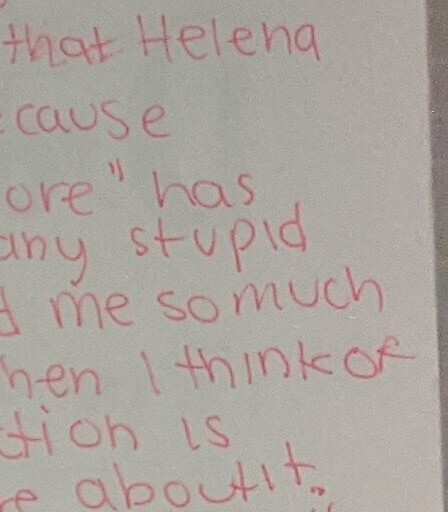 that Helena
cause
ore" has
any stupid
d me so much
hen I think of
tion is
re about it.